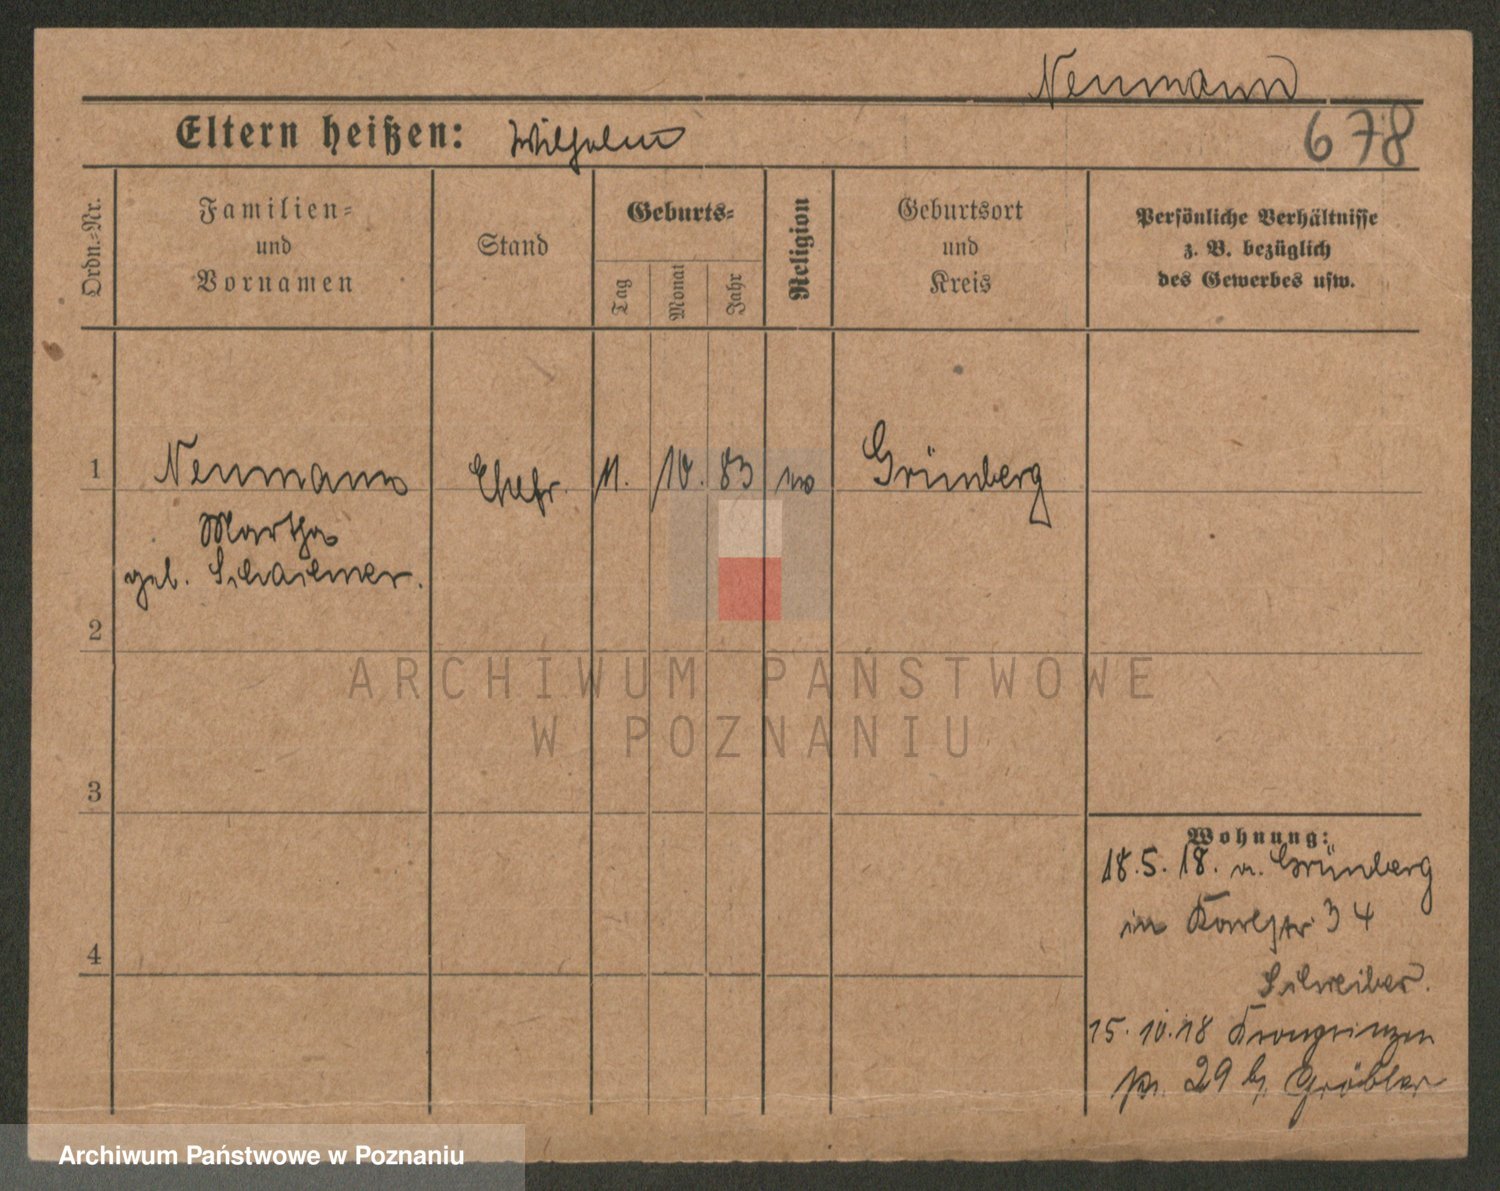 Neumann
Eltern heißen: Wilhelm
678
Ordn.-Nr.
Familien-
und
Vornamen
Stand
Geburts-
Tag
Monat
Jahr
Religion
Geburtsort
und
Kreis
Persönliche Verhältnisse
z. B. bezüglich
des Gewerbes usw.
1
Neumann
Ehefr.
11.
10.
83
Grünberg
Martha
geb.
2
ARCHIWUM PAŃSTWOWE
W POZNANIU
3
Wohnung:
18.5.18. v. Grünberg
in Karlstr 34
Schreiber.
4
15.10.18 Kronprinzen
str. 29 b. Gräbler
Archiwum Państwowe w Poznaniu